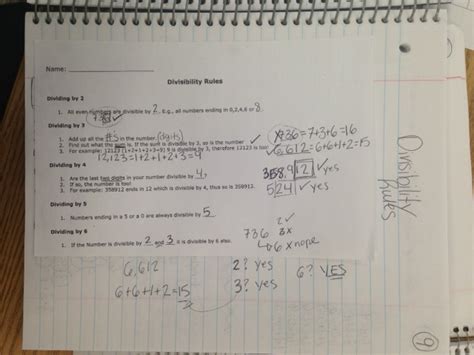 Name:
Divisibility Rules
Dividing by 2
1. All even numbers are divisible by 2. E.g., all numbers ending in 0,2,4,6 or 8.
738 ✓
Dividing by 3
1. Add up all the #'s in the number. (digits)
2. Find out what the sum is. If the sum is divisible by 3, so is the number ✓
3. For example: 12123 (1+2+1+2+3=9) 9 is divisible by 3, therefore 12123 is too!
12,123=1+2+1+2+3=4
x736=7+3+6=16
✓6,612=6+6+1+2=15
Dividing by 4
1. Are the last two digits in your number divisible by 4?
2. If so, the number is too!
3. For example: 358912 ends in 12 which is divisible by 4, thus so is 358912.
358,912 ✓yes
524 ✓yes
Dividing by 5
1. Numbers ending in a 5 or a 0 are always divisible by 5
Dividing by 6
1. If the Number is divisible by 2 and 3 it is divisible by 6 also.
2✓
736 3x
6 x nope
6,612
2? yes
6? YES
6+6+1+2=15
3? yes
Divisibility
Rules
9